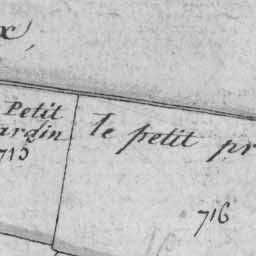 x
Petit
ardin
715
le petit pr
716